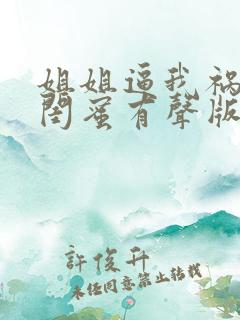 姐姐逼我祸
闺蜜有聲版
許俊升
未经同意禁止转载